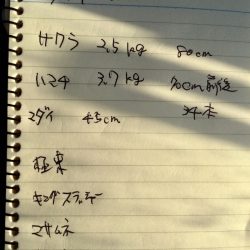 サワラ 2.5kg 80cm
ハマチ 3.7kg 70cm前後
マダイ 45cm
極東
キングスラッシャー
マサムネ